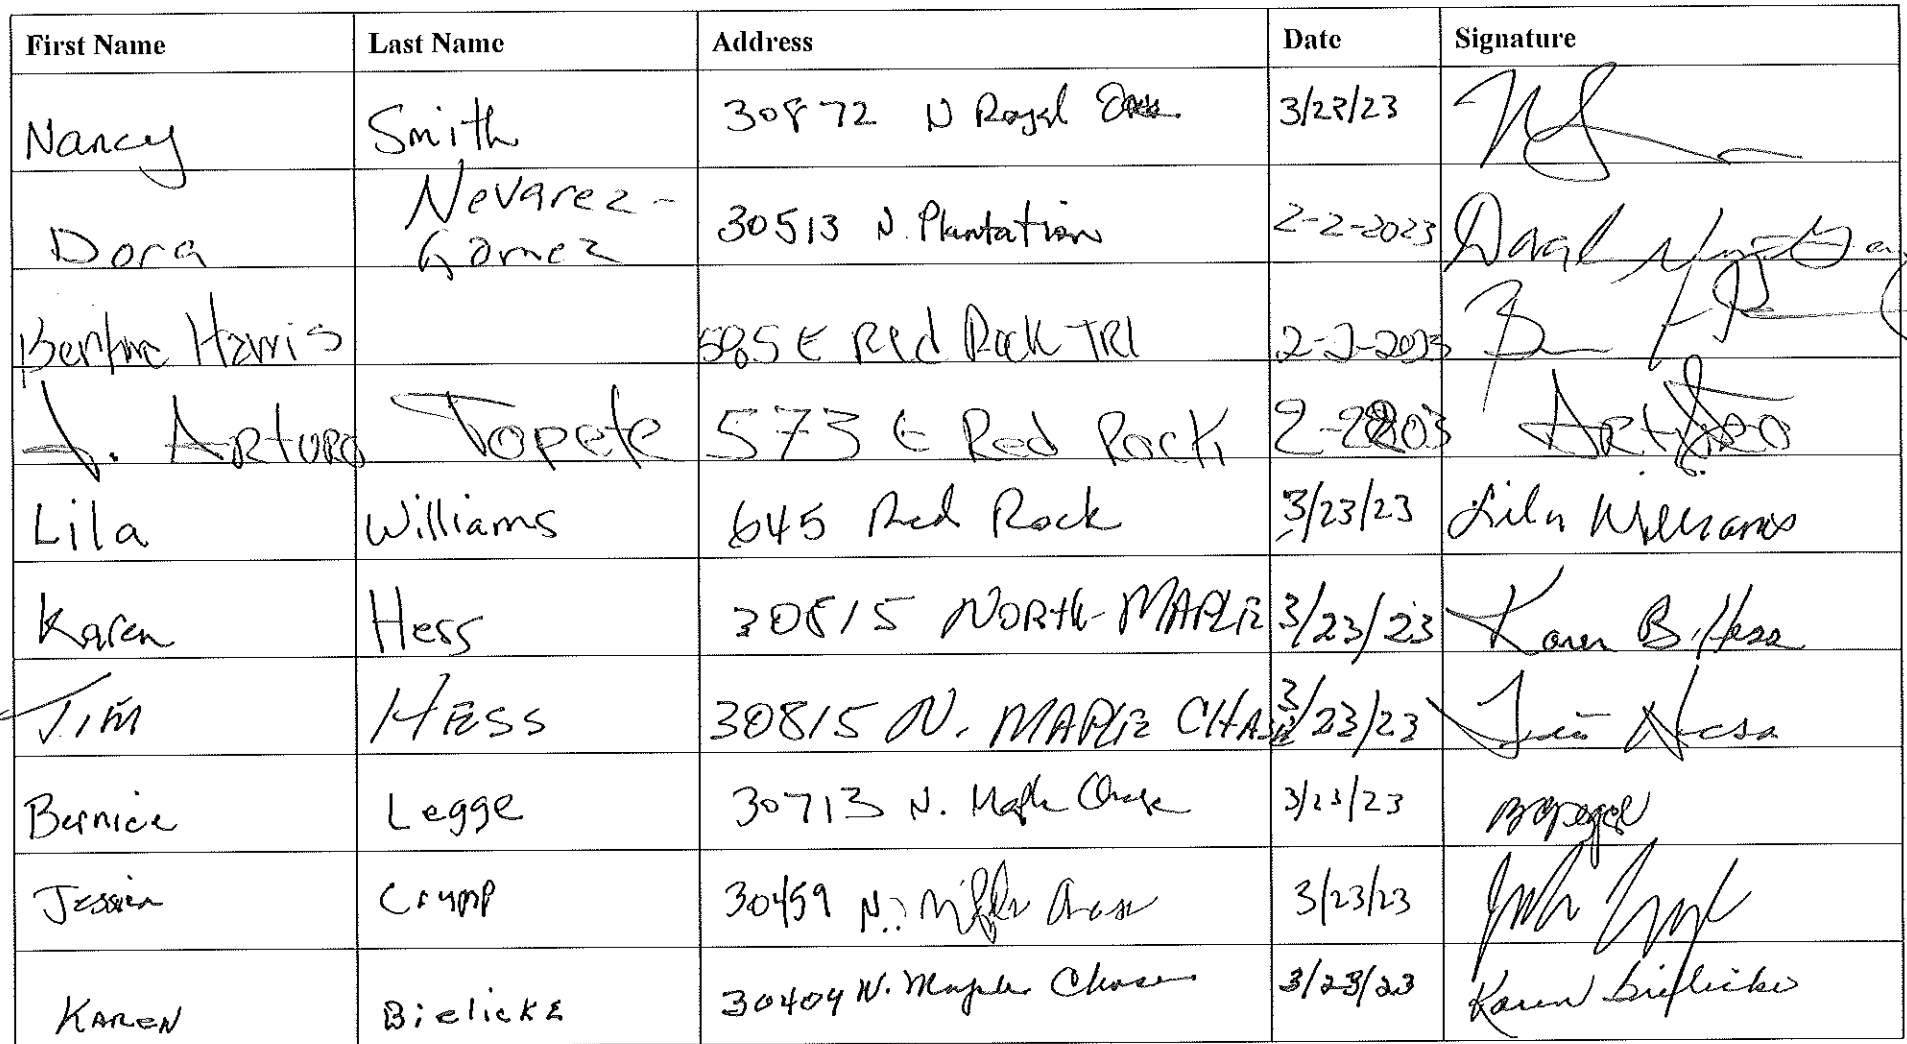 First Name Last Name Address Date Signature
Nancy Smith 30872 N Royal 3/23/23
Dora Nevarez-
Gomez 30513 N. Plantation 2-2-2023
Harris 585 E Red Rock TRl 2-2-2023
J. Arturo Topete 573 E Red Rock Arturo
Lila Williams 645 Red Rock 3/23/23 Lila Williams
Karen Hess 30815 NORth MAPLE 3/23/23 Karen B. Hess
JIM HESS 30815 N. MAPLE CHASE 3/23/23 Jim Hess
Bernice Legge 30713 N. Maple Chase 3/23/23
Jessica Crump 30459 N. Maple Chase 3/23/23
KAREN BielickE 30404 N. Maple Chase 3/23/23 Karen Bielicke